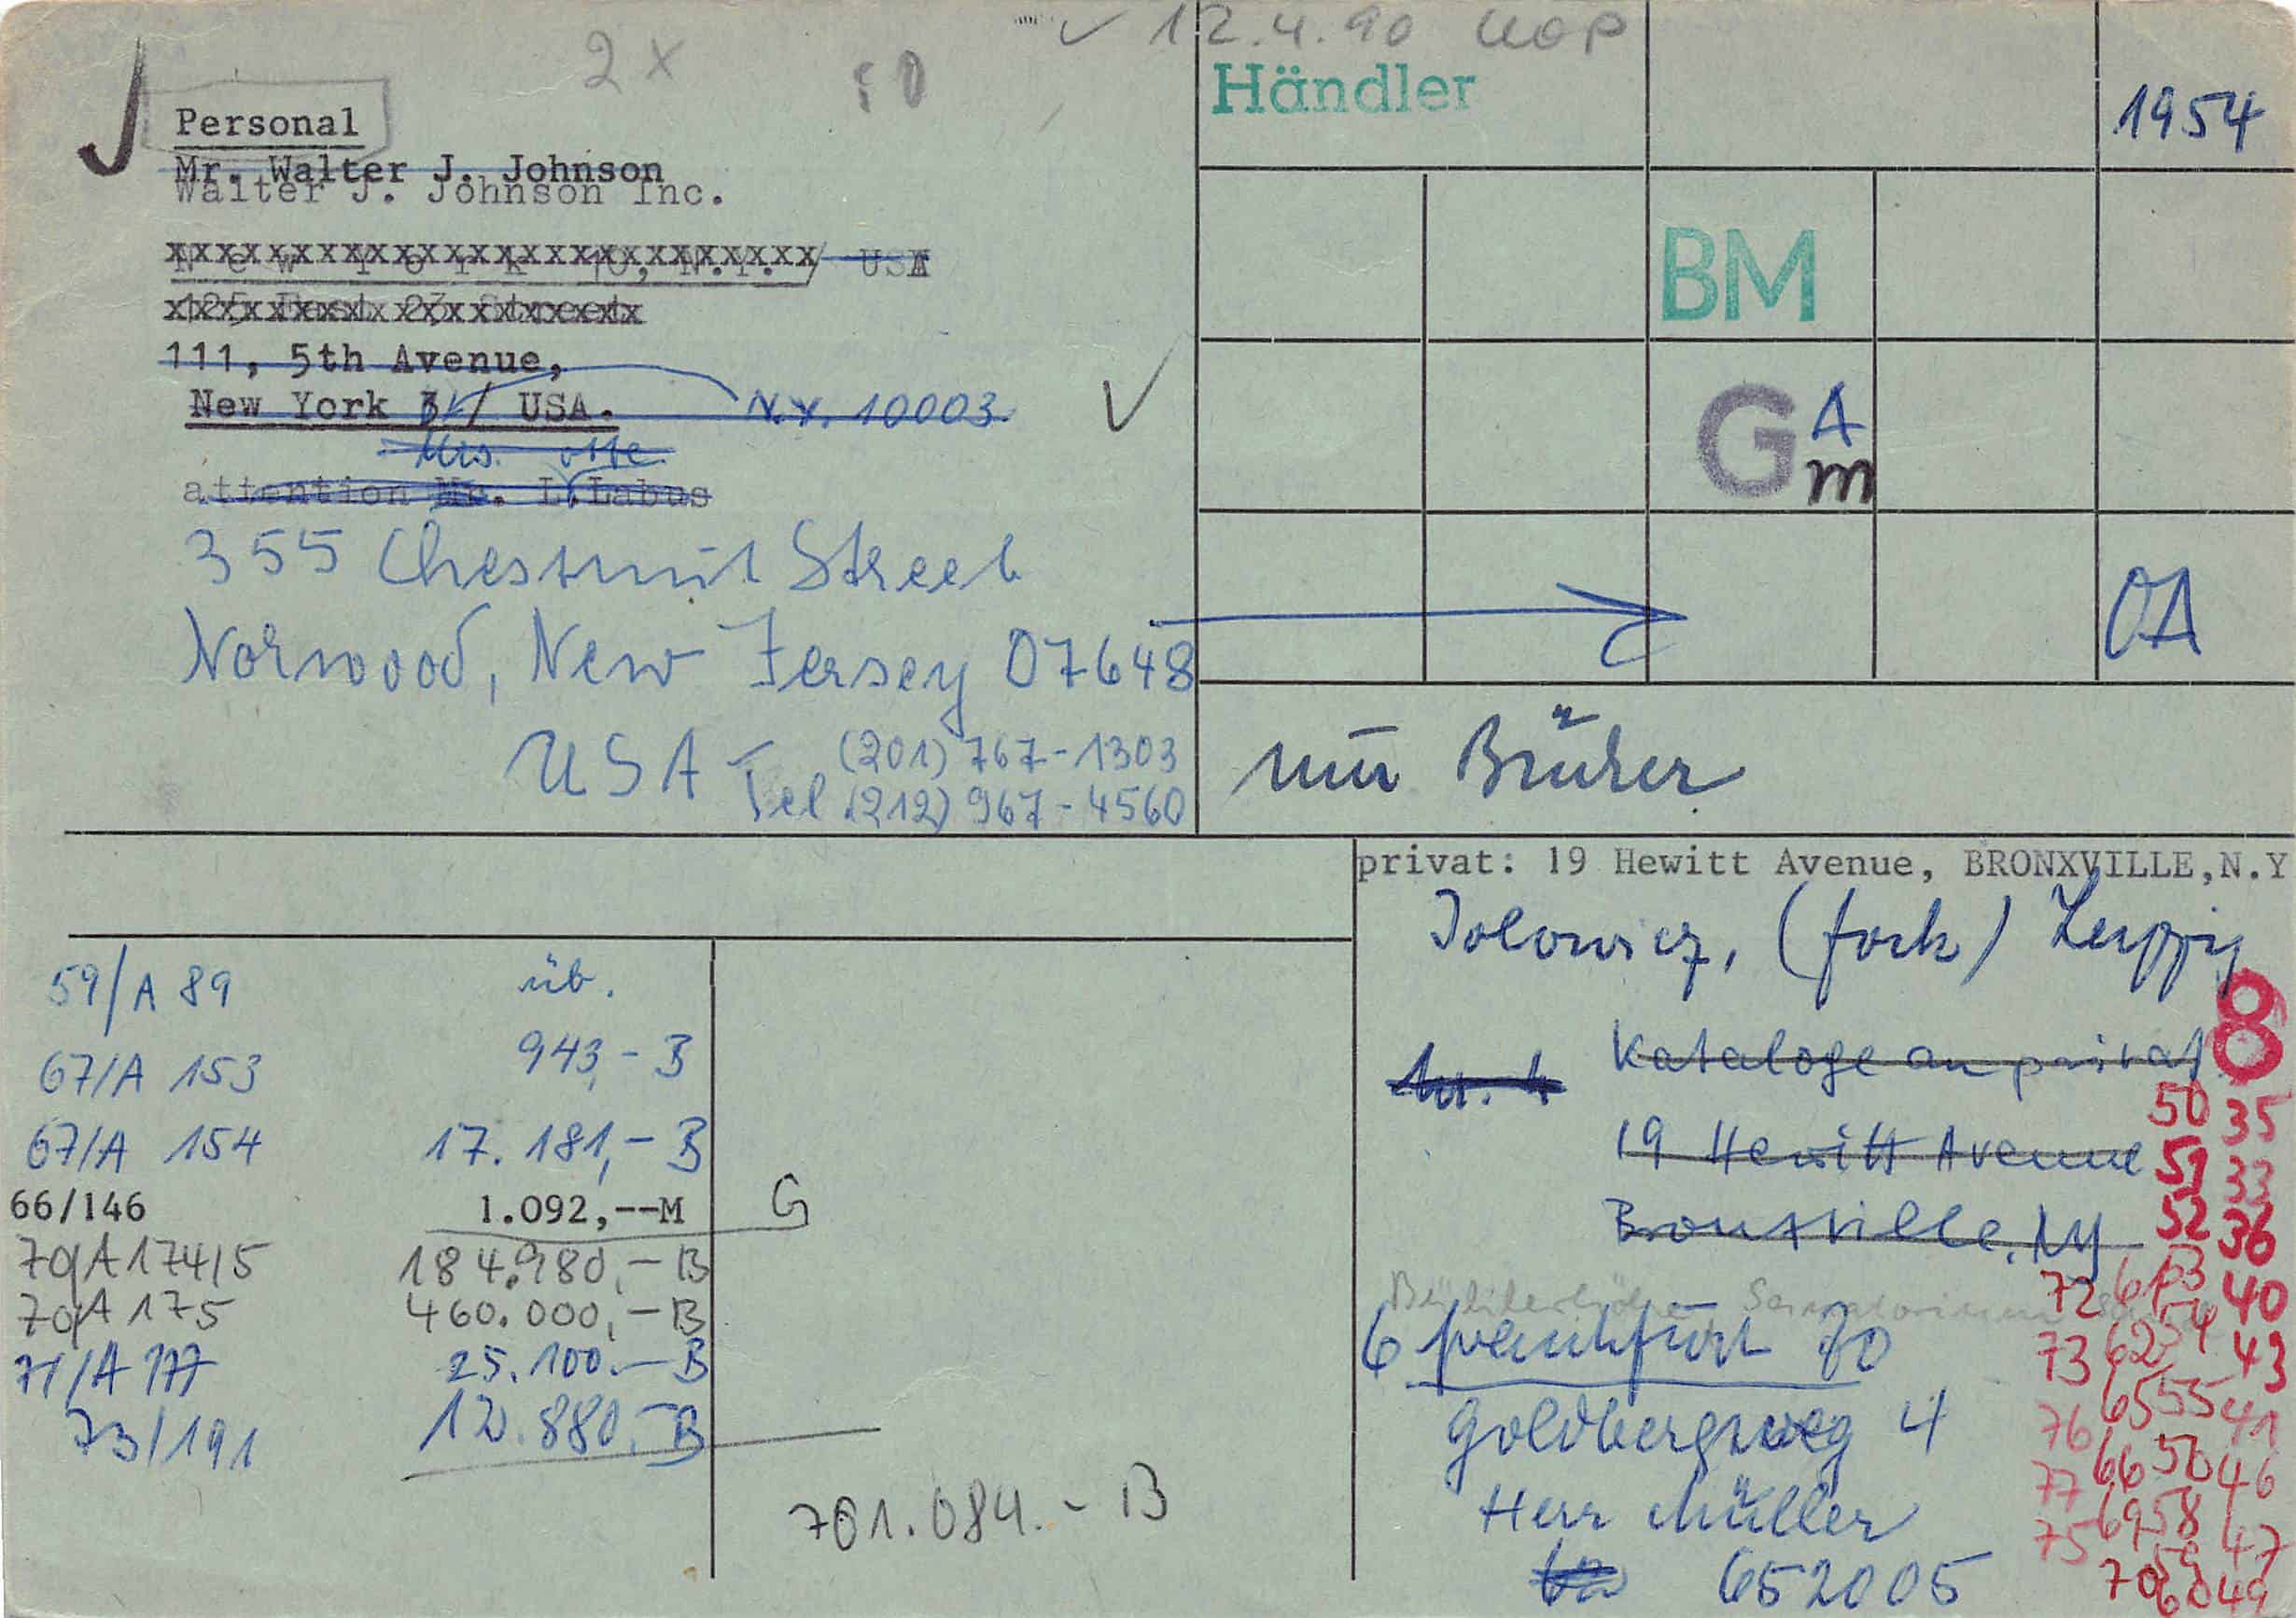 12.4.90
2 x
Händler
1954
Personal
Mr. Walter J. Johnson
Walter J. Johnson Inc.
New York 10, N.Y. USA
125 East 23 Street
BM
111, 5th Avenue,
New York 3 / USA. N.Y. 10003
G A
m
Mrs.
attention Mr. L. Labus
355 Chestnut Street
Norwood, New Jersey 07648
OA
USA
(201) 767-1303
Tel (212) 967-4560
nur Bücher
privat: 19 Hewitt Avenue, BRONXVILLE, N.Y
Jolowicz, (Fock) Leipzig
59/A 89 üb.
67/A 153 943,- B
67/A 154 17.181,- B
66/146 1.092,--M G
70/A 174/5 184.980,- B
70/A 175 460.000,- B
71/A 177 25.100.- B
73/191 12.880.- B
701.084.- B
Kataloge an privat
19 Hewitt Avenue
Bronxville, NY
6 Frankfurt 70
Goldbergweg 4
Herr Müller
652005
8
50 35
51 33
52 36
72 61 53 40
73 62 54 43
76 65 55 41
77 66 50 46
75 69 58 47
70 59
60 49